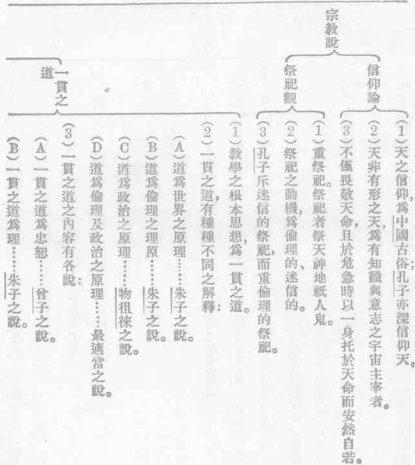 宗教說
信仰論
（1）天之信仰，爲中國古俗；孔子亦深信仰天。
（2）天非有形之天，爲有知識與意志之宇宙主宰者。
（3）不僅畏敬天命，且於危急時以一身托於天命而安然自若。
祭祀觀
（1）重祭祀。祭祀者祭天神地祇人鬼。
（2）祭祀之動機，爲倫理的、迷信的。
（3）孔子斥迷信的祭祀，而重倫理的祭祀。
一貫之道
（1）教學之根本思想，爲一貫之道。
（2）一貫之道，有種種不同之解釋：
（A）道爲世界之原理……朱子之說。
（B）道爲倫理之理原……朱子之說。
（C）道爲政治之原理……物徂徠之說。
（D）道爲倫理及政治之原理……最適當之說。
（3）一貫之道之內容有各說：
（A）一貫之道爲忠恕……曾子之說。
（B）一貫之道爲理……朱子之說。